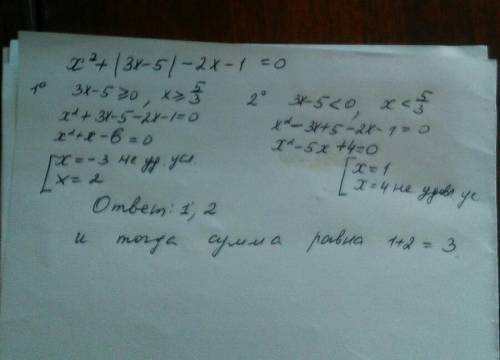 x²+|3x-5|-2x-1=0
1° 3x-5≥0, x≥5/3
x²+3x-5-2x-1=0
x²+x-6=0
[x=-3 не уд. усл.
x=2
2° 3x-5<0, x<5/3
x²-3x+5-2x-1=0
x²-5x+4=0
[x=1
x=4 не удовл. ус
Ответ: 1, 2
и тогда сумма равна 1+2=3